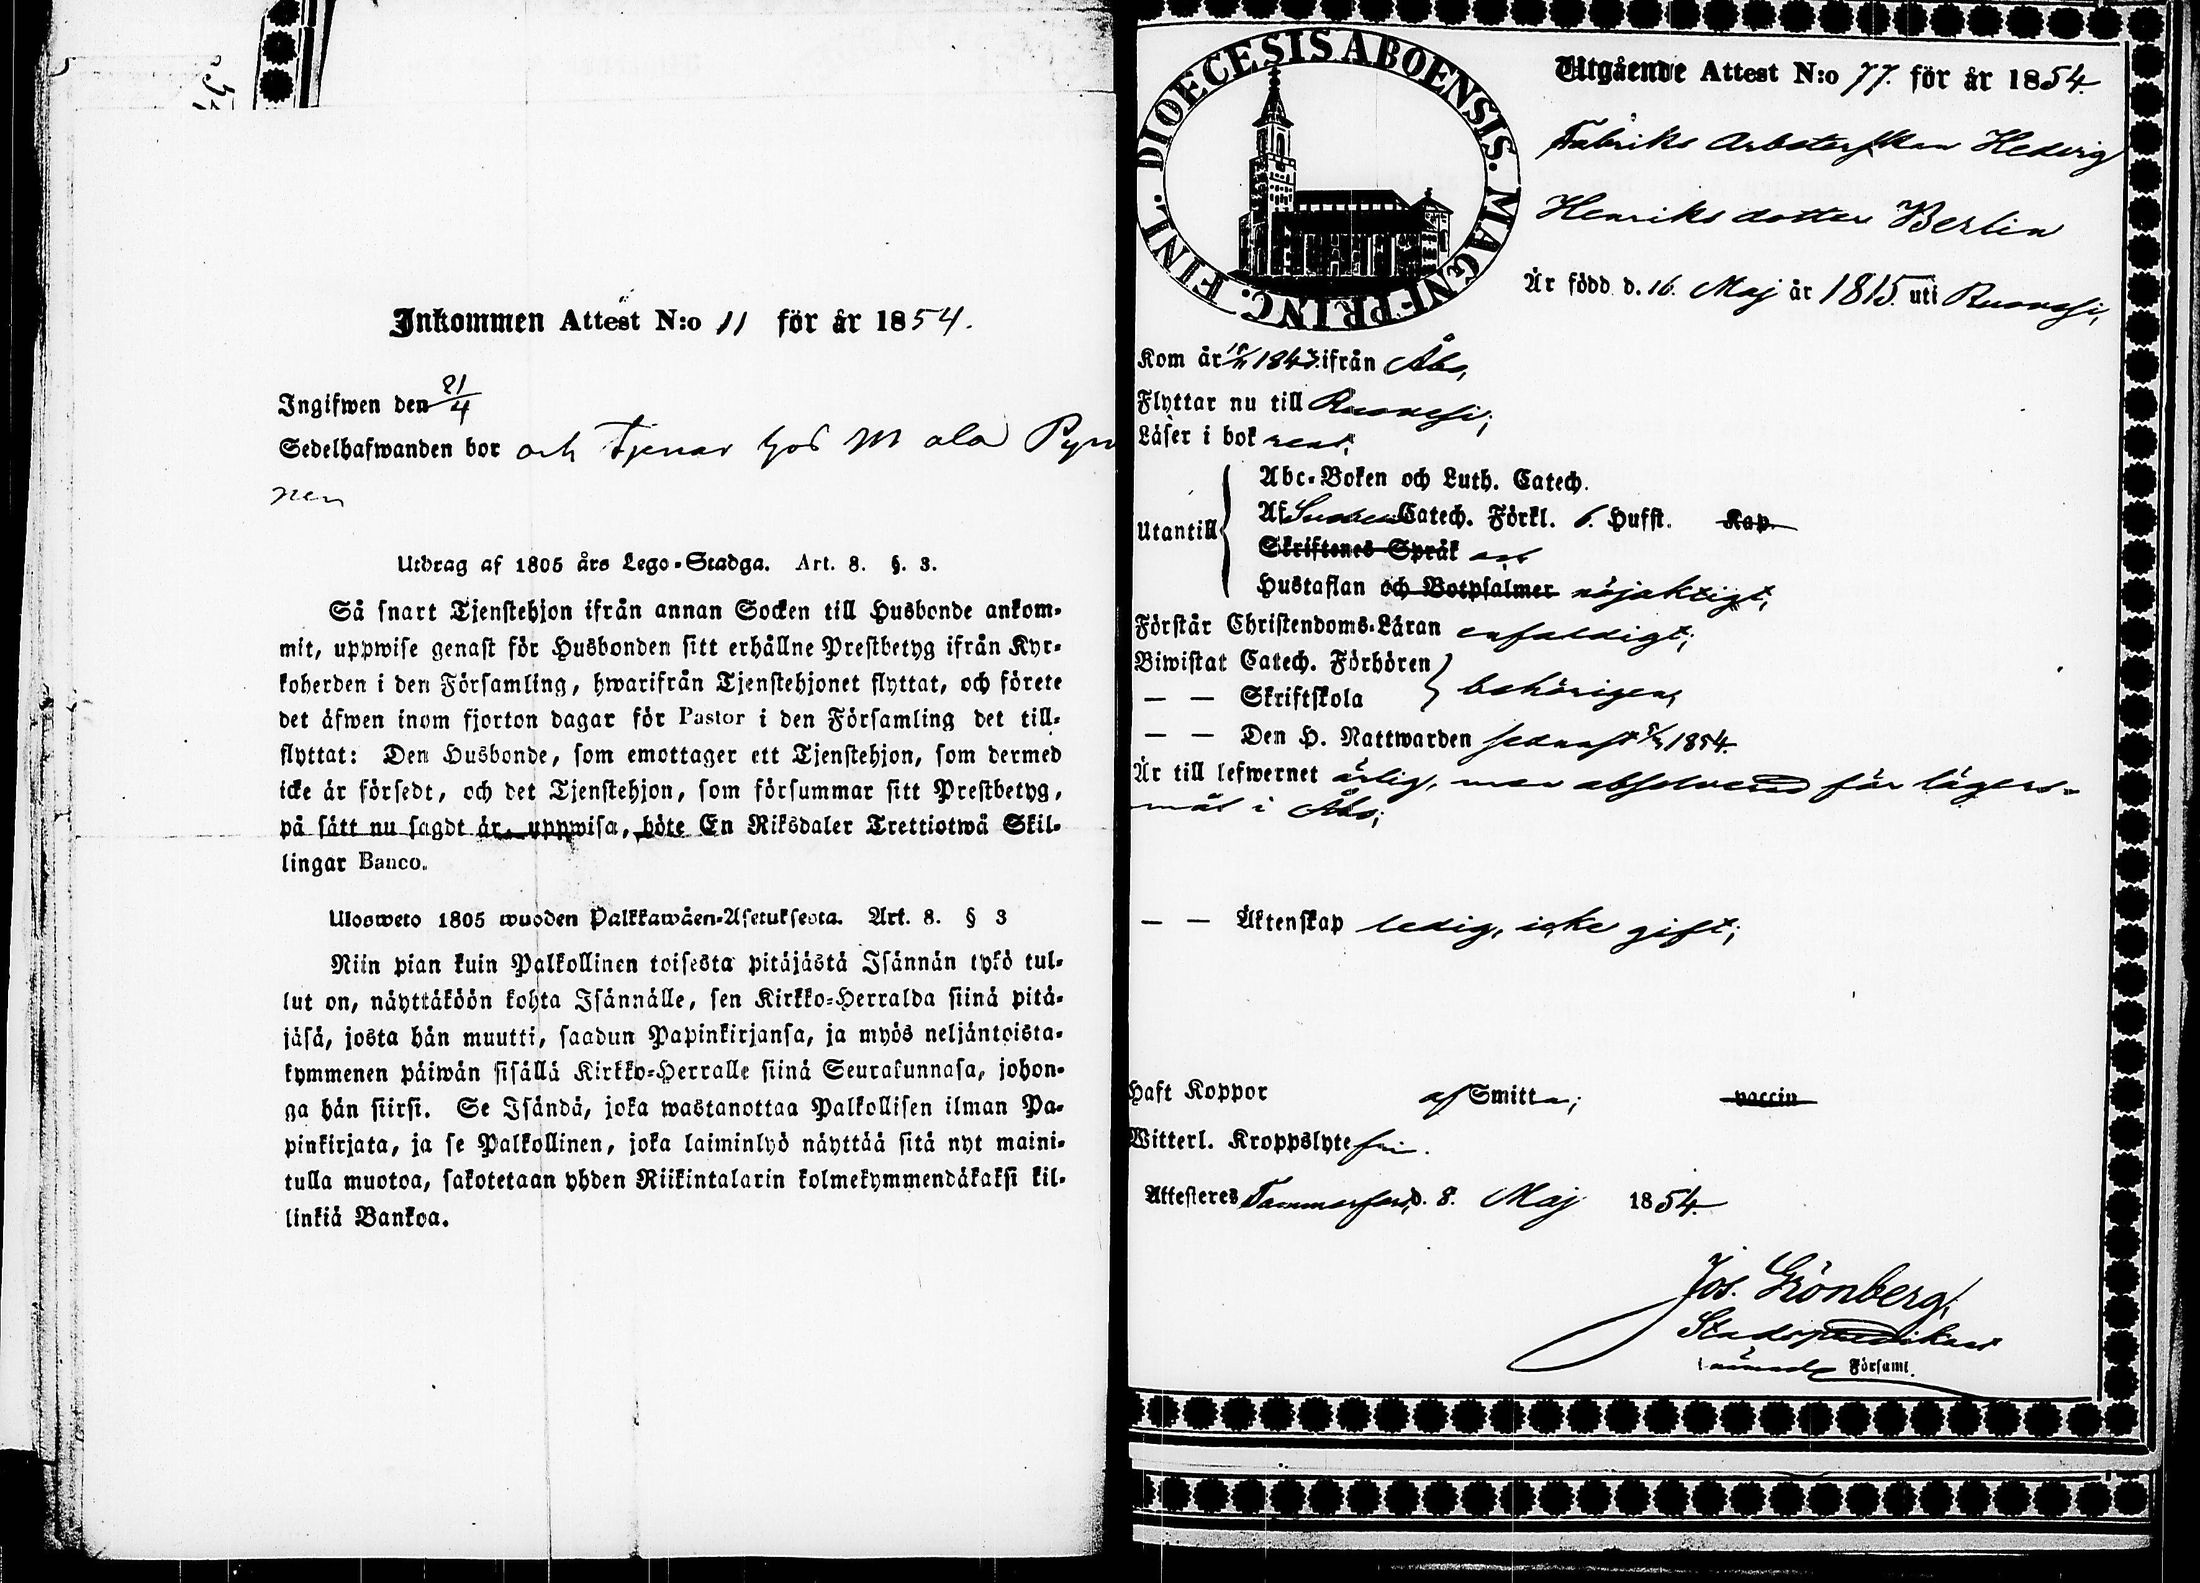 Inkommen Attest N:o 11 för år 1854.
Ingifwen den 21/4
Sedelhafwanden bor och tjenar hos M ala Pyn
nen
Utdrag af 1805 års Lego-Stadga. Art. 8. §. 3.
Så snart Tjenstehjon ifrån annan Socken till Husbonde ankom-
mit, uppwise genast för Husbonden sitt erhållne Prestbetyg ifrån Kyr-
koherden i den Församling, hwarifrån Tjenstehjonet flyttat, och förete
det äfwen inom fjorton dagar för Pastor i den Församling det till-
flyttat: Den Husbonde, som emottager ett Tjenstehjon, som dermed
icke är försedt, och det Tjenstehjon, som försummar sitt Prestbetyg,
på sätt nu sagdt är, uppwisa, böte En Riksdaler Trettiotwå Skil-
lingar Banco.
Ulosweto 1805 wuoden Palkkawäen-Asetuksesta. Art. 8. § 3
Niin pian kuin Palkollinen toisesta pitäjästä Isännän tykö tul-
lut on, näyttäköön kohta Isännälle, sen Kirkko-Herralda siinä pitä-
jäsä, josta hän muutti, saadun Papinkirjansa, ja myös neljäntoista-
kymmenen päiwän sisällä Kirkko-Herralle siinä Seurakunnasa, johon-
ga hän siirsi. Se Isändä, joka wastanottaa Palkollisen ilman Pa-
pinkirjata, ja se Palkollinen, joka laiminlyö näyttää sitä nyt maini-
tulla muotoa, sakotetaan yhden Riikintalarin kolmekymmendäkaksi kil-
linkiä Bankoa.
DIOECESIS ABOENSIS. MAGNI PRINC. FINL.
Utgående Attest N:o 77. för år 1854.
Fabriks Arbeterskan Hedvig
Henriks dotter Berlin
Är född d. 16. Maj år 1815. uti Ruovesi,
Kom år 1843. ifrån Åbo,
Flyttar nu till Ruovesi;
Läser i bok rent;
Utantill
Abc-Boken och Luth. Catech.
Af Catech. Förkl. 6. Hufst. Kap.
Skriftenes Språk
Hustaflan och Botpsalmer nöjaktigt;
Förstår Christendoms-Läran enfaldigt;
Biwistat Catech. Förhören
— — Skriftskola behörigen,
— — Den H. Nattwarden sednast 1854.
Är till lefwernet ärlig, men absolverad för lägers-
mål i Åbo;
— — Äktenskap ledig, icke gift;
Haft Koppor af Smitta; vaccin
Witterl. Kroppslyte fri.
Attesteres Tammerfors, d. 8. Maj 1854.
Jos. Grönberg,
Stadspredikant
i nämnde Församl.